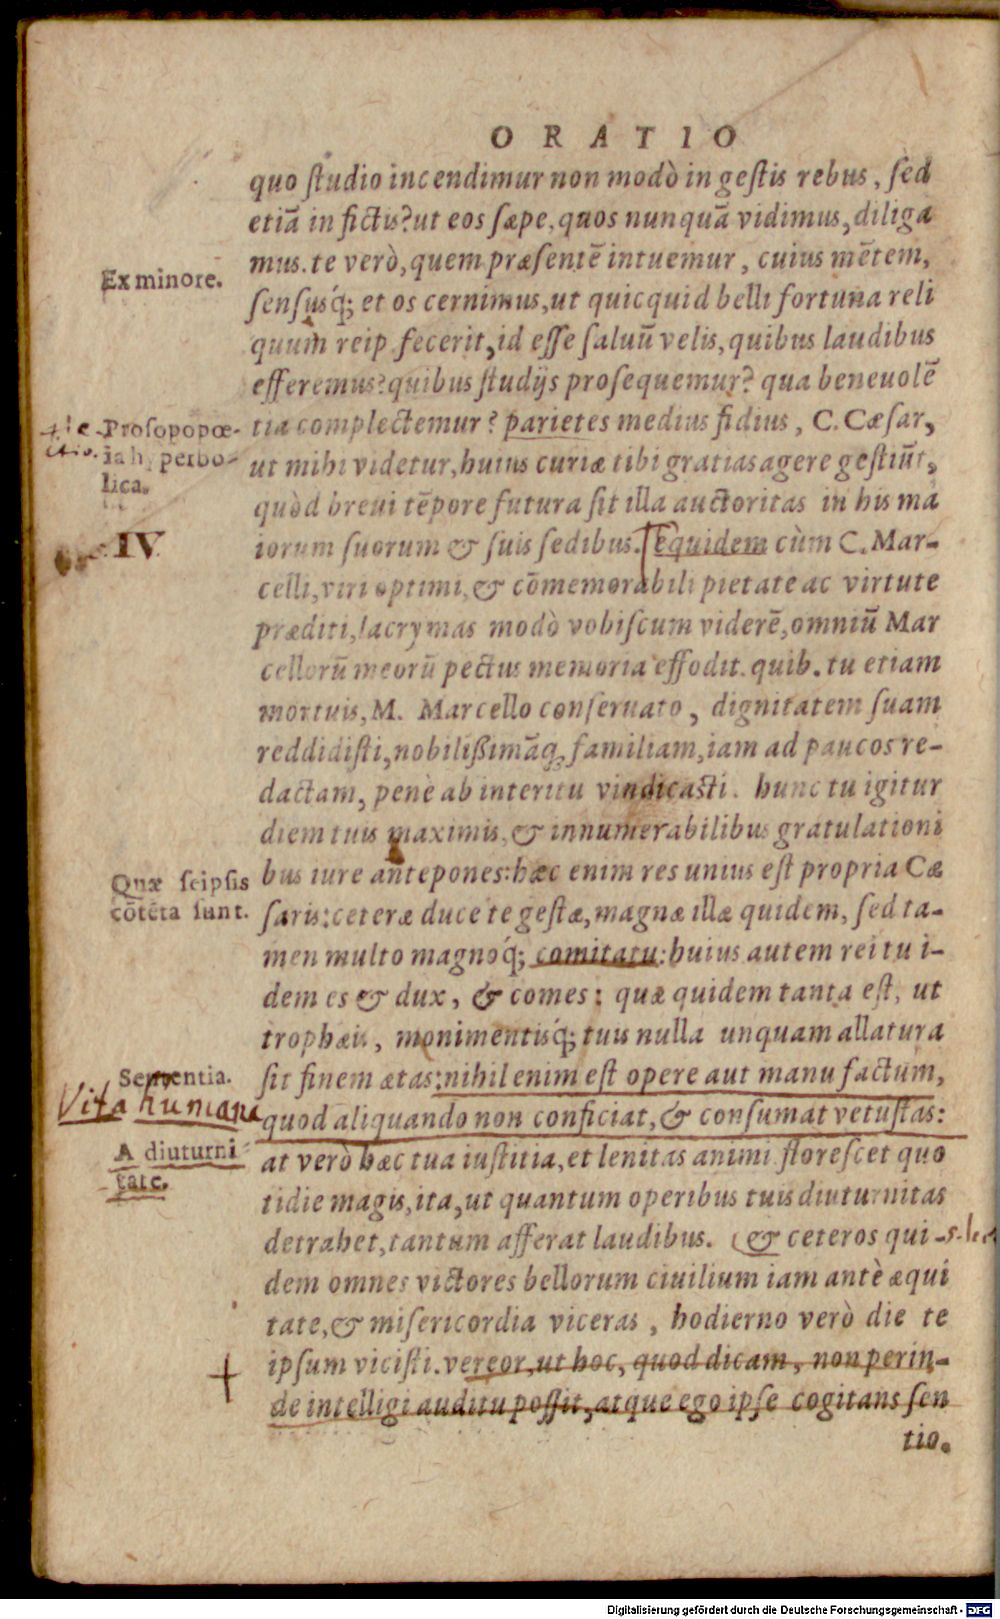 ORATIO
quo ſtudio incendimur non modò in geſtis rebus, ſed
etiā in fictis? ut eos ſæpe, quos nunquā vidimus, diliga
mus. te verò, quem præſentē intuemur, cuius mētem,
Ex minore.
ſenſusq́; et os cernimus, ut quicquid belli fortuna reli
quum reip fecerit, id eſſe ſaluū velis, quibus laudibus
efferemus? quibus ſtudijs proſequemur? qua beneuolē
tia complectemur? parietes medius fidius, C. Cæſar,
Proſopopœ-
ia hyperbo-
lica.
ut mihi videtur, huius curiæ tibi gratias agere geſtiūt,
quòd breui tēpore futura ſit illa auctoritas in his ma
iorum ſuorum & ſuis ſedibus. Equidem cùm C. Mar-
IV
celli, viri optimi, & cōmemorabili pietate ac virtute
præditi, lacrymas modò vobiſcum viderē, omniū Mar
cellorū meorū pectus memoria effodit. quib. tu etiam
mortuis, M. Marcello conſeruato, dignitatem ſuam
reddidiſti, nobilißimāq; familiam, iam ad paucos re-
dactam, penè ab interitu vindicaſti. hunc tu igitur
diem tuis maximis, & innumerabilibus gratulationi
bus iure antepones: hæc enim res unius eſt propria Cæ
Quæ ſeipſis
cōtēta ſunt.
ſaris: ceteræ duce te geſtæ, magnæ illæ quidem, ſed ta-
men multo magnoq́; comitatu: huius autem rei tu i-
dem es & dux, & comes: quæ quidem tanta eſt, ut
trophæis, monimentisq́; tuis nulla unquam allatura
ſit finem ætas: nihil enim eſt opere aut manu factum,
Sententia.
Vita humana
quod aliquando non conficiat, & conſumat vetuſtas:
A diuturni
tate.
at verò hæc tua iuſtitia, et lenitas animi floreſcet quo
tidie magis, ita, ut quantum operibus tuis diuturnitas
detrahet, tantum afferat laudibus. & ceteros qui-
dem omnes victores bellorum ciuilium iam antè æqui
tate, & miſericordia viceras, hodierno verò die te
ipſum viciſti. vereor, ut hoc, quod dicam, non perin-
de intelligi auditu poſſit, atque ego ipſe cogitans ſen
tio.
Digitalisierung gefördert durch die Deutsche Forschungsgemeinschaft - DFG